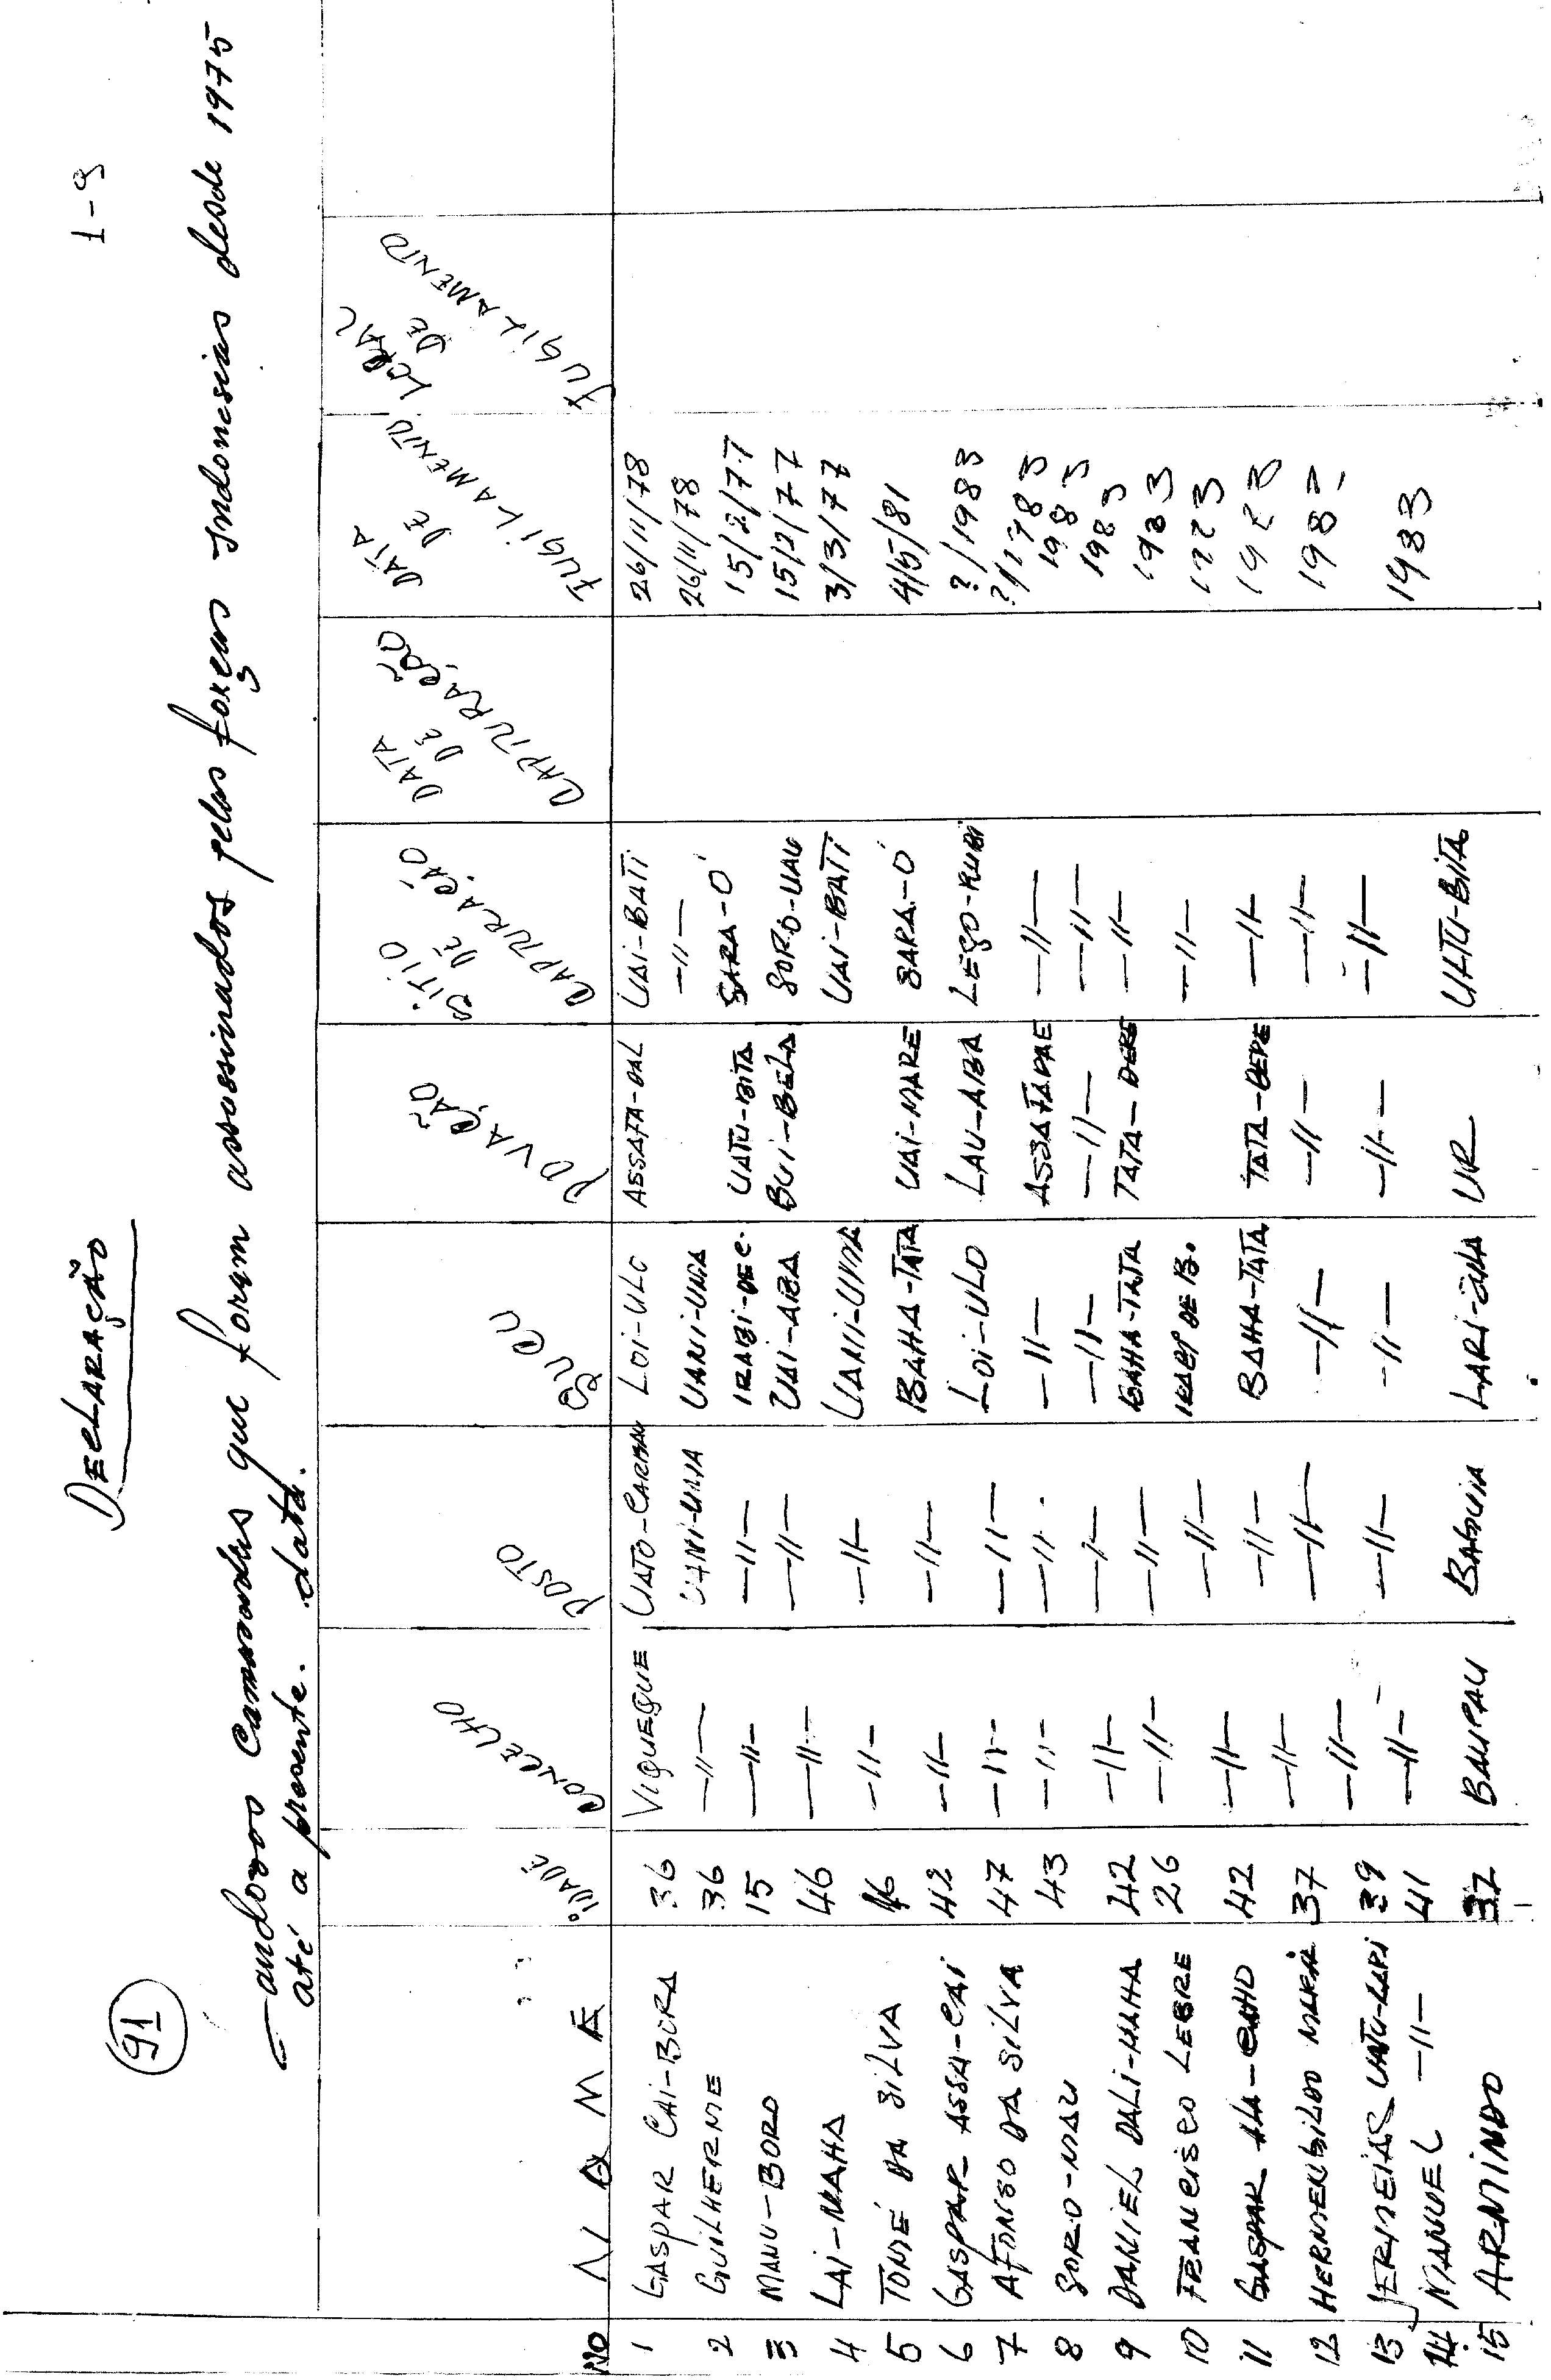 91
DECLARAÇÃO
1-9
camaradas que foram assassinados pelas forças indonesias desde 1975
até a presente data.
NO NOME IDADE CONCELHO POSTO SUCU POVAÇÃO SITIO DE CAPTURAÇÃO DATA DE CAPTURAÇÃO DATA DE FUGILAMENTO LOCAL DE FUGILAMENTO
1 GASPAR CAI-BORA 36 VIQUEQUE UATO-CARBAU LOI-ULO ASSAFA-DAL UAI-BATI 26/11/78
2 GUILHERME 36 —//— UANI-UMA —//— 26/11/78
3 MANU-BORO 15 —//— —//— IRABI-DE C. UATU-BITA SARA-Ó 15/2/77
4 LAI-MAHA 46 —//— —//— UAI-ABA BUI-BELA SORO-UAU 15/2/77
5 TOMÉ DA SILVA —//— —//— UANI-UMA UAI-BATI 3/3/77
6 GASPAR ASSU-CAI 42 —//— —//— BAHA-TATA UAI-MARE SARA-Ó 4/5/81
7 AFONSO DA SILVA 47 —//— —//— LOI-ULO LAU-ABA LEQO-RUBI ?/1983
8 SORO-MAU 43 —//— —//— —//— ASSAFADAE —//—
9 DANIEL DALI-MAHA 42 —//— —//— —//— —//— —//— 1983
10 FRANCISCO LEBRE 26 —//— —//— BAHA-TATA TATA-DERE —//— 1983
11 GASPAR 42 —//— —//— IRABI DE B. —//— 1983
12 HERMENGILDO 37 —//— —//— BAHA-TATA TATA-DERE —//—
13 JEREMIAS UATU-LARI 39 —//— —//— —//— —//— —//—
14 MANUEL —//— 41 —//— —//— —//— —//— —//—
15 ARMINDO 37 BAUCAU BAGUIA LARI-SULA UR UATU-BITA 1983